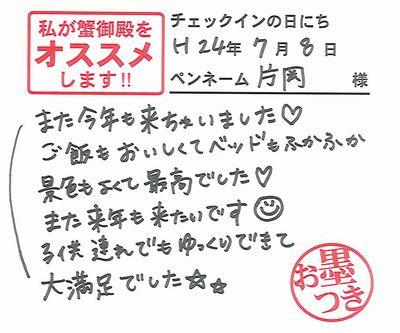 私が蟹御殿を
オススメ
します!!
チェックインの日にち
H24年7月8日
ペンネーム 片岡 様
また今年も来ちゃいました♡
ご飯もおいしくてベッドもふかふか
景色もよくて最高でした♡
また来年も来たいです☺
子供連れでもゆっくりできて
大満足でした☆☆
お墨つき